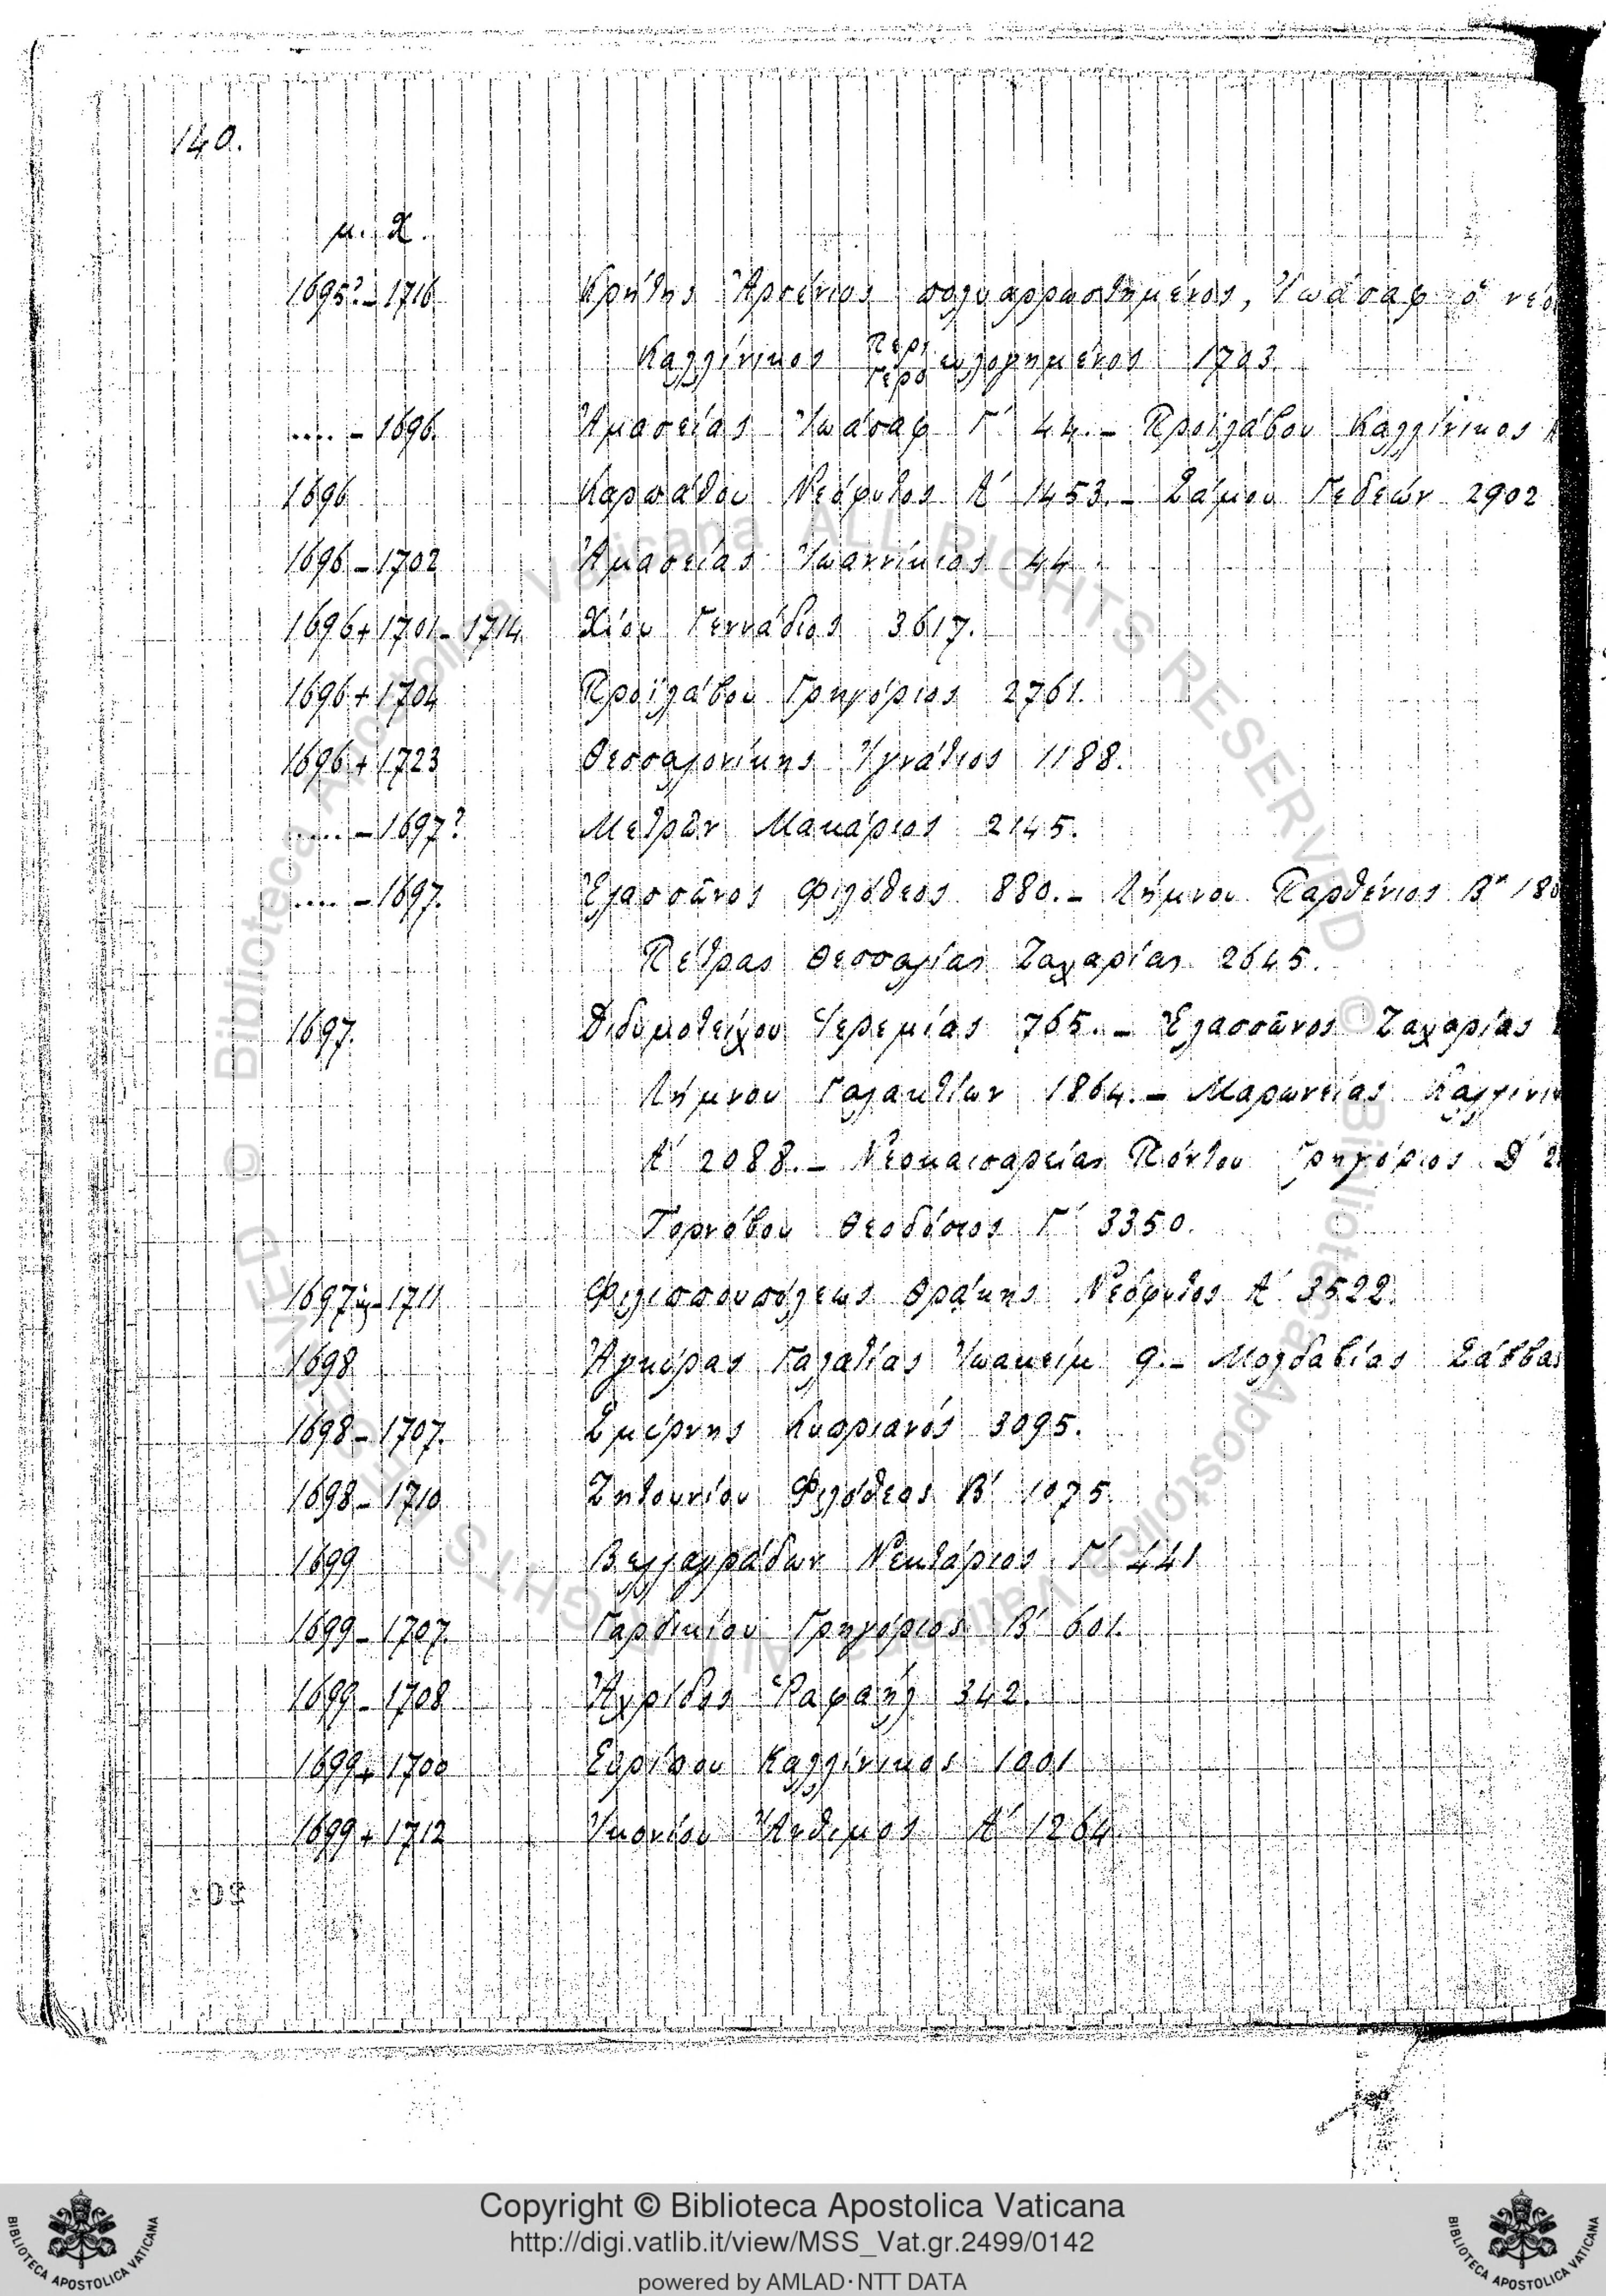 140.
μ. Χ.
1695?-1716 Κρήτης Ἀρσένιος πολυαρρωστημένος, Ἰωάσαφ ὁ νέο
Καλλίνικος Περι Γερο ωλογημένος 1703.
....-1696. Ἀμασείας Ἰωάσαφ Γ΄ 44.- Προϊλάβου Καλλίνικος
1696 Καρπάθου Νεόφυτος Α΄ 1453.- Σάμου Γεδεών 2902
1696-1702 Ἀμασείας Ἰωαννίκιος 44.
1696+1701-1714 Χίου Γεννάδιος 3617.
1696+1704 Προϊλάβου Γρηγόριος 2761.
1696+1723 Θεσσαλονίκης Ἰγνάτιος 1188.
.....-1697? Μετρῶν Μακάριος 2145.
....-1697. Ἐλασσῶνος Φιλόθεος 880.- Λήμνου Παρθένιος Β΄ 180
Πέτρας Θεσσαλίας Ζαχαρίας 2645.
1697. Διδυμοτείχου Ἱερεμίας 765.- Ἐλασσῶνος Ζαχαρίας
Λήμνου Γαλακτίων 1864.- Μαρωνείας Καλλινικ
Α΄ 2088.- Νεοκαισαρείας Πόντου Γρηγόριος Δ΄ 2
Τορνόβου Θεοδόσιος Γ΄ 3350.
1697 -1711 Φιλιππουπόλεως Θράκης Νεόφυτος Α΄ 3522.
1698 Ἀγκύρας Γαλατίας Ἰωακείμ 9.- Μολδαβίας Σάββας
1698-1707. Σμύρνης Κυπριανός 3095.
1698-1710 Ζητουνίου Φιλόθεος Β΄ 1075.
1699 Βελλαγράδων Νεκτάριος Γ΄ 441
1699-1707. Γαρδικίου Γρηγόριος Β΄ 601.
1699-1708 Ἀχρίδος Ῥαφαήλ 342.
1699+1700 Εὐρίπου Καλλίνικος 1001
1699+1712 Ἰκονίου Ἄνθιμος Α΄ 1264.
Copyright © Biblioteca Apostolica Vaticana
http://digi.vatlib.it/view/MSS_Vat.gr.2499/0142
powered by AMLAD·NTT DATA
BIBLIOTECA APOSTOLICA VATICANA
BIBLIOTECA APOSTOLICA VATICANA